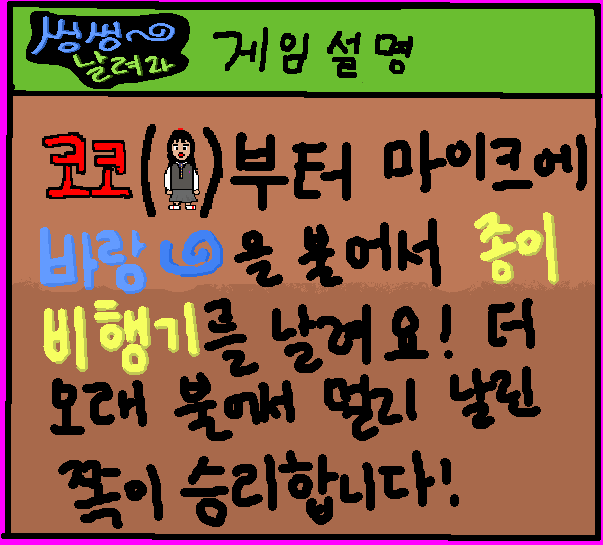 씽씽
날려라
게임설명
코코( )부터 마이크에
바람을 불어서 종이
비행기를 날려요! 더
오래 불어서 멀리 날린
쪽이 승리합니다!